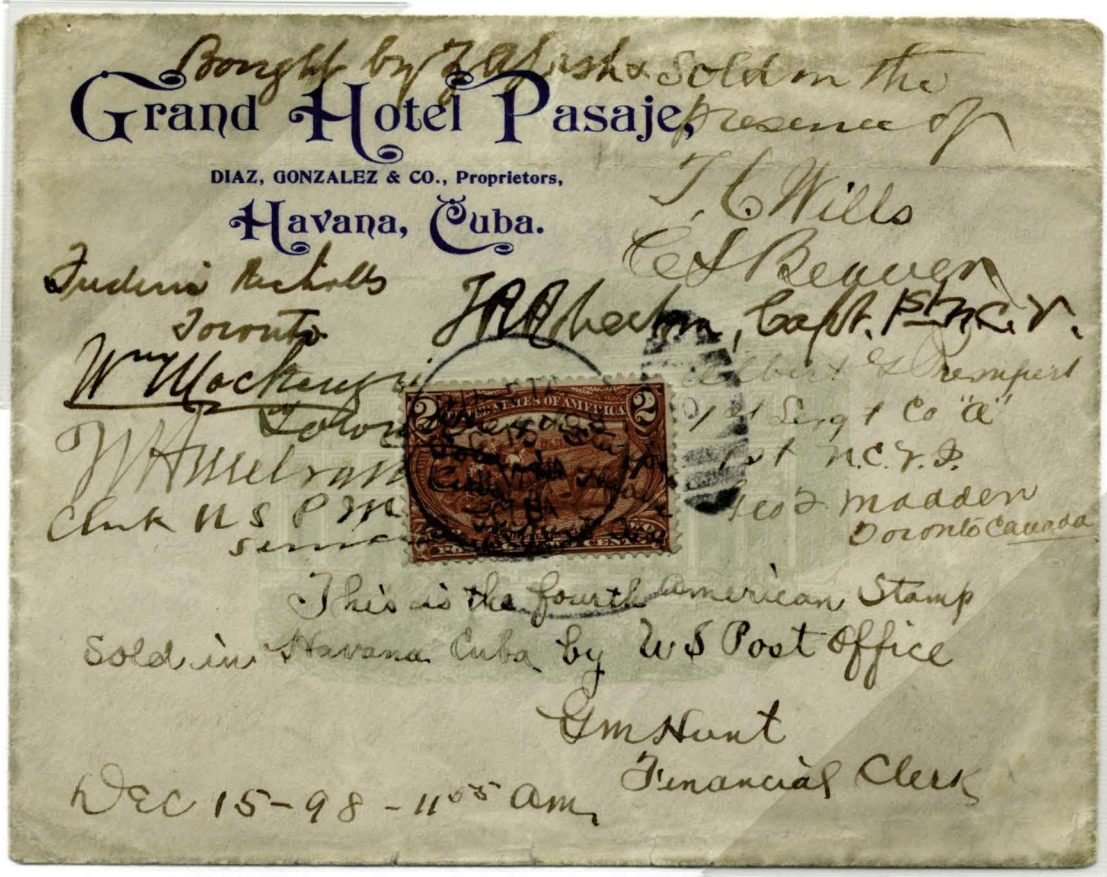 Bought by & sold in the
presence of
Grand Hotel Pasaje,
DIAZ, GONZALEZ & CO., Proprietors,
Havana, Cuba.
T. C. Wills
C S Beaven
Nicholls
Toronto
Capt. 1st N.C.V.
Wm Mackenzie
Albert G
1st Sergt Co "A"
1st N.C.V.I.
Clerk U S P
Geo Madden
Toronto Canada
2 UNITED STATES OF AMERICA 2
This is the fourth American Stamp
Sold in Havana Cuba by U S Post Office
GM Hunt
Financial Clerk
DEC 15-98-11 55 am,